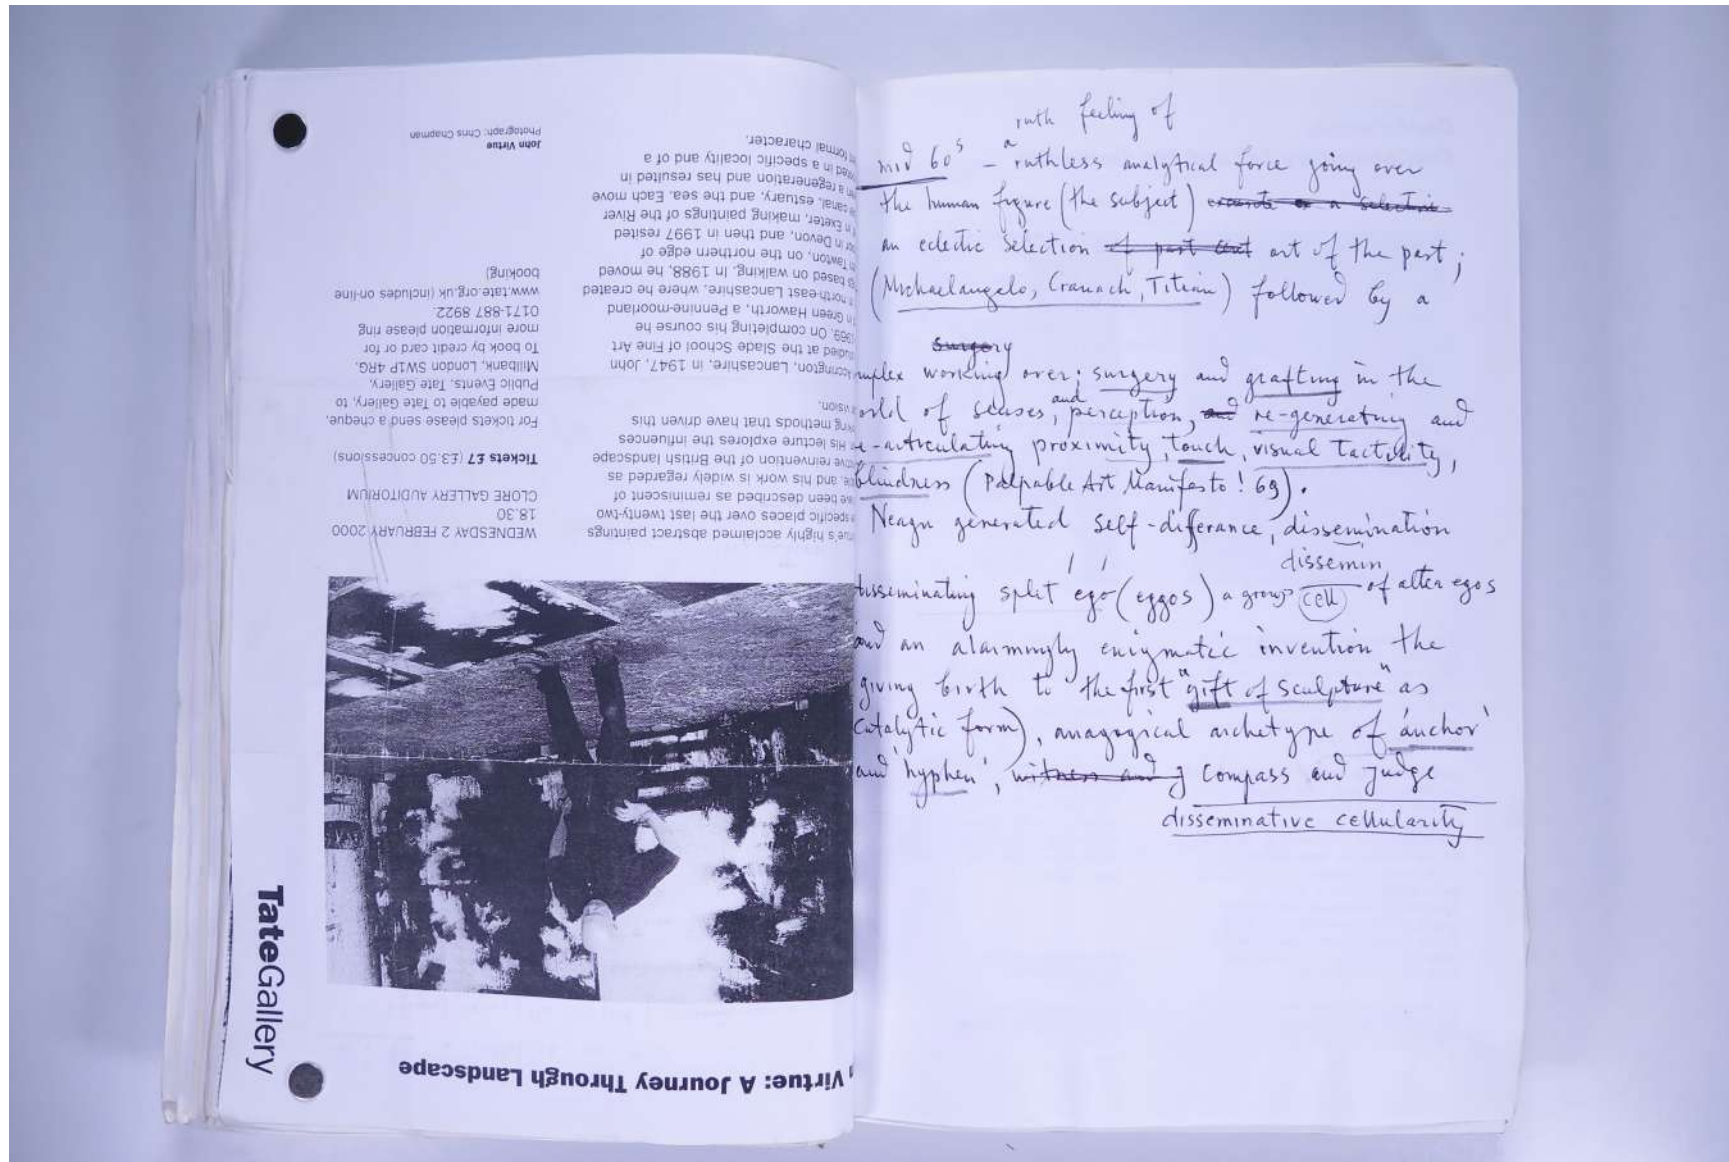 TateGallery
Virtue: A Journey Through Landscape
tue's highly acclaimed abstract paintings
specific places over the last twenty-two
ve been described as reminiscent of
and his work is widely regarded as
tive reinvention of the British landscape
His lecture explores the influences
king methods that have driven this
vision.
Accrington, Lancashire, in 1947, John
studied at the Slade School of Fine Art
1969. On completing his course he
in Green Haworth, a Pennine-moorland
north-east Lancashire, where he created
gs based on walking. In 1988, he moved
Tawton, on the northern edge of
or in Devon, and then in 1997 resited
in Exeter, making paintings of the River
e canal, estuary, and the sea. Each move
n a regeneration and has resulted in
in a specific locality and of a
formal character.
WEDNESDAY 2 FEBRUARY 2000
18.30
CLORE GALLERY AUDITORIUM
Tickets £7 (£3.50 concessions)
For tickets please send a cheque,
made payable to Tate Gallery, to
Public Events, Tate Gallery,
Millbank, London SW1P 4RG.
To book by credit card or for
more information please ring
0171-887 8922.
www.tate.org.uk (includes on-line
booking)
John Virtue
Photograph: Chris Chapman
ruth feeling of
mid 60s – a ruthless analytical force going over
the human figure (the subject) a selection
an eclectic selection of past art of the past;
(Michaelangelo, Cranach, Titian) followed by a
surgery
mplex working over; surgery and grafting in the
orld of senses, and perception, and re-generating and
e-articulating proximity, touch, visual tactility,
blindness (Palpable Art Manifesto! 69).
Neagu generated self-differance, dissemination
dissemin
disseminating split ego (eggos) a group cell of alter egos
and an alarmingly enigmatic invention the
giving birth to the first "gift of sculpture" as
catalytic form), anagogical archetype of 'anchor'
and 'hyphen', witness and j compass and judge
disseminative cellularity